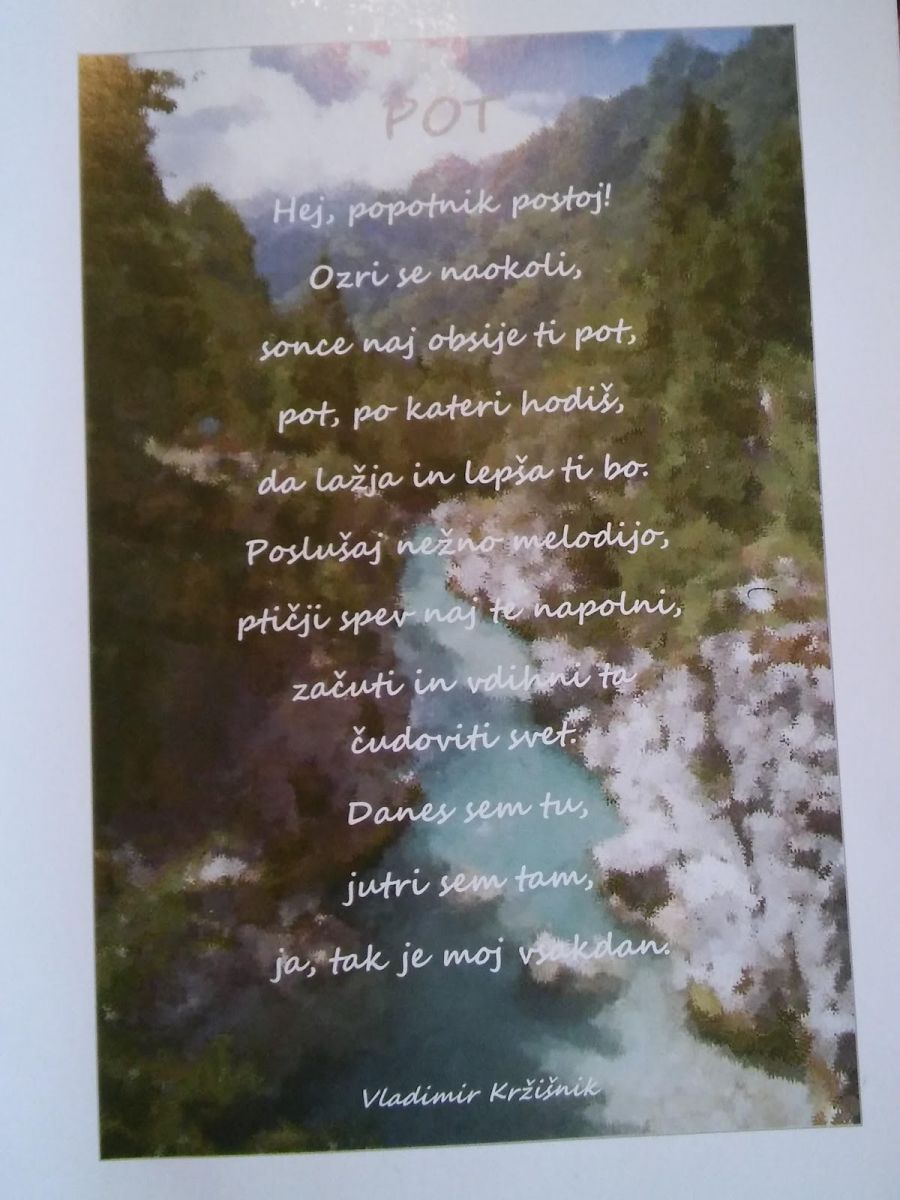 POT
Hej, popotnik postoj!
Ozri se naokoli,
sonce naj obsije ti pot,
pot, po kateri hodiš,
da lažja in lepša ti bo.
Poslušaj nežno melodijo,
ptičji spev naj te napolni,
začuti in vdihni ta
čudoviti svet.
Danes sem tu,
jutri sem tam,
ja, tak je moj vsakdan.
Vladimir Kržišnik